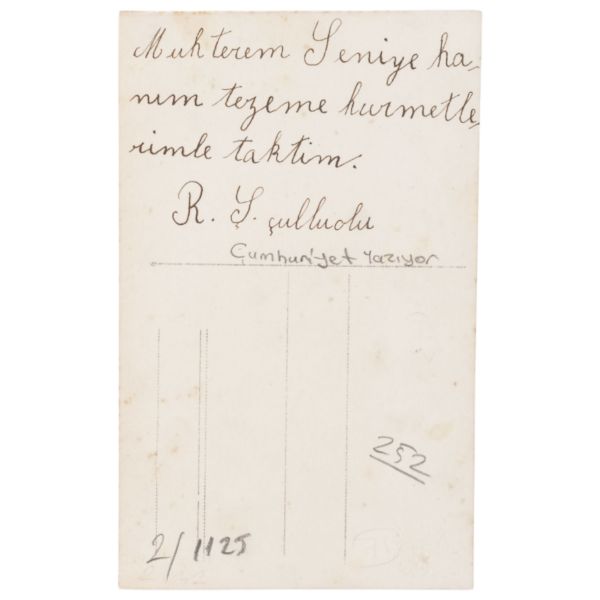 Muhterem Seniye ha-
nım tezeme hurmetle-
rimle taktim.
R. Ş. çulluolu
Cumhuriyet Yazıyor
252
2/1125